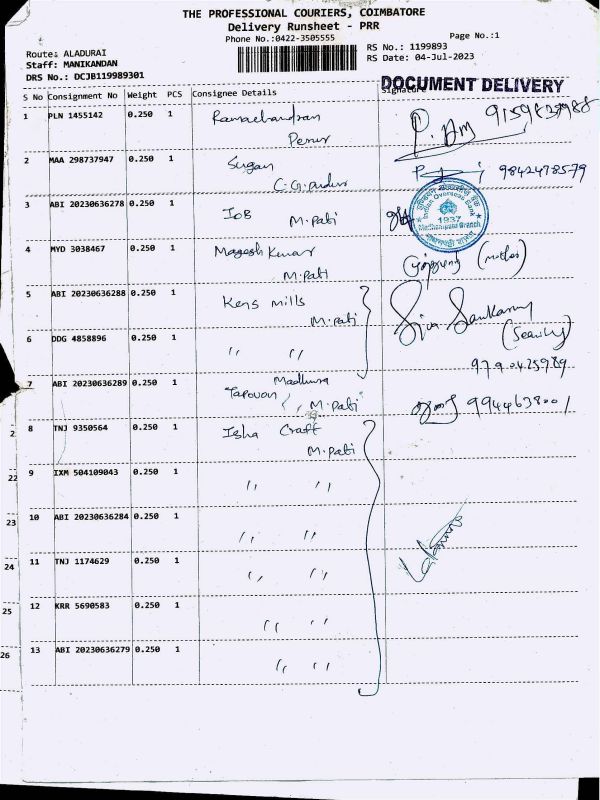 THE PROFESSIONAL COURIERS, COIMBATORE
Delivery Runsheet - PRR
Phone No.:0422-3505555
Page No.:1
Route: ALADURAI
RS No.: 1199893
Staff: MANIKANDAN
RS Date: 04-Jul-2023
DRS No.: DCJB119989301
DOCUMENT DELIVERY
S No Consignment No Weight PCS Consignee Details Signature
1 PLN 1455142 0.250 1 Ramachandran
Perur
2 MAA 298737947 0.250 1 Sugan 9842478579
3 ABI 20230636278 0.250 1 IOB M.Pati
Indian Overseas Bank
1937
4 MYD 3038467 0.250 1 Magesh Kumar
M.Pati
5 ABI 20230636288 0.250 1 Kens mills
M.Pati
Siva Sankaran
6 DDG 4858896 0.250 1 〃 〃
(Security)
9790425989
7 ABI 20230636289 0.250 1 Tapovan Madhura
M.Pati 9944638001
2 8 TNJ 9350564 0.250 1 Isha Craft
M.Pati
22 9 IXM 504109043 0.250 1 〃 〃
23 10 ABI 20230636284 0.250 1 〃 〃
24 11 TNJ 1174629 0.250 1 〃 〃
25 12 KRR 5690583 0.250 1 〃 〃
26 13 ABI 20230636279 0.250 1 〃 〃